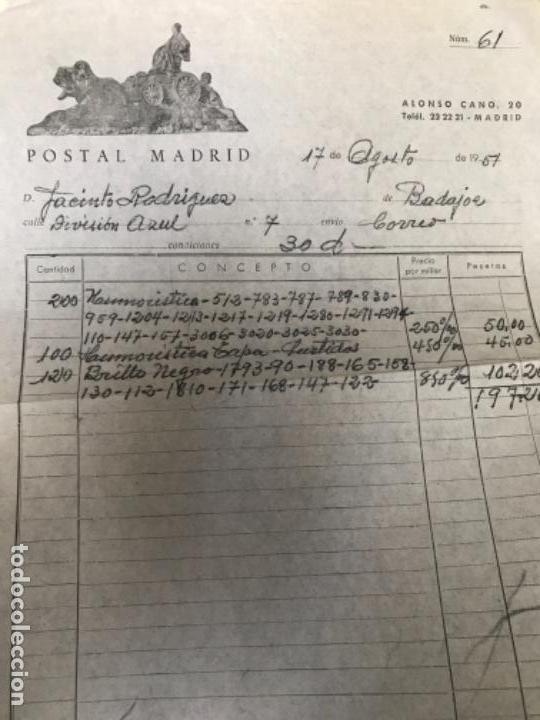 Núm. 61
ALONSO CANO, 20
Teléf. 23 22 21 - MADRID
POSTAL MADRID
17 de Agosto de 1957
D. Jacinto Rodriguez de Badajoz
calle División Azul n.º 7 envío Correo
condiciones 30 d
Cantidad CONCEPTO Precio por millar Pesetas
200 Humoristica-512-783-787-789-830-
959-1204-1213-1217-1219-1280-1271-1294
110-147-157-3006-3020-3025-3030- 250% 50,00
100 Humoristica Capa-Surtidos 450% 45,00
120 Brillo Negro-1793-90-188-165-158- 850% 102,20
130-112-1810-171-168-147-122 197,20
todocoleccion